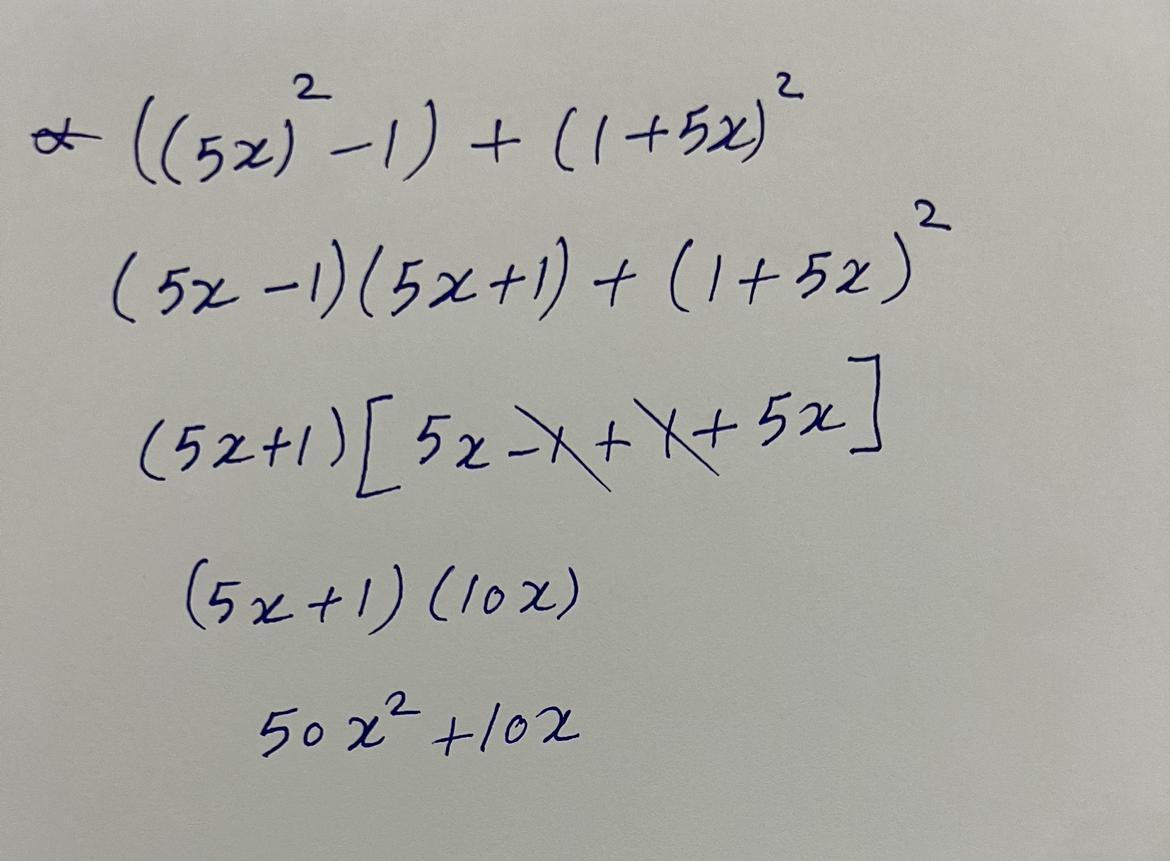 ∝ ((5x)² -1) + (1+5x)²
(5x -1)(5x+1) + (1+5x)²
(5x+1)[5x -1 + 1 + 5x]
(5x+1) (10x)
50x² +10x